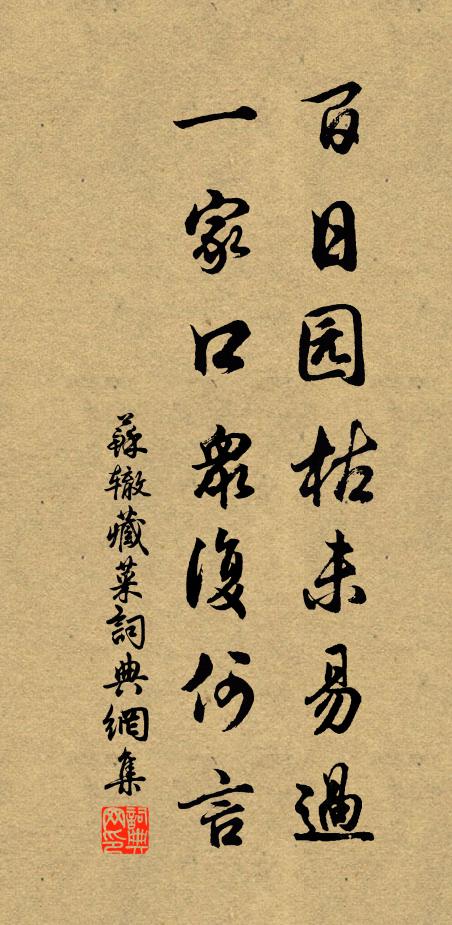 百日园枯未易過
一家口衆復何言
蘇辙藏菜詞典網集
詞典
网印